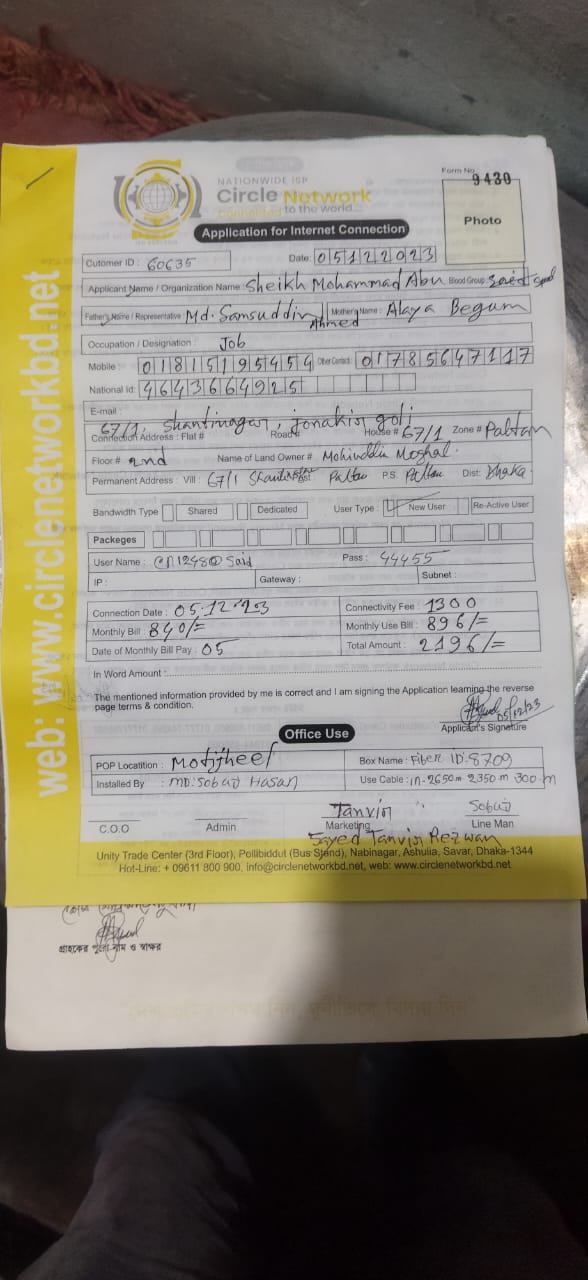 Form No.
9430
NATIONWIDE ISP
Circle Network
Connected to the world...
Photo
Application for Internet Connection
Cutomer ID : 60635 Date: 05122023
Applicant Name / Organization Name : Sheikh Mohammad Abu Blood Group:
Father's Name / Representative : Md. Samsuddin Ahmed Mother's Name : Alaya Begum
Occupation / Designation : Job
Mobile 01815195454 Other Contact : 01785647117
National Id: 4643664925
E-mail :
67/1, Shantinagar, Jonakir goli
Connection Address : Flat # Road # House # 67/1 Zone # Paltan
Floor # 2nd Name of Land Owner # Mohiuddin Moshal
Permanent Address : Vill : 67/1 Paltan P.S. Paltan Dist: Dhaka
Bandwidth Type Shared Dedicated User Type : New User Re-Active User
Packeges
User Name : Said Pass : 44455
IP : Gateway : Subnet :
Connection Date : 05.12.23 Connectivity Fee : 1300
Monthly Bill : 840/= Monthly Use Bill : 896/=
Date of Monthly Bill Pay : 05 Total Amount : 2196/=
In Word Amount :
The mentioned information provided by me is correct and I am signing the Application learning the reverse
page terms & condition.
05/12/23
Applicant's Signature
Office Use
POP Locatition : Motijheel Box Name : Fiber ID:8709
Installed By : MD. Sobuj Hasan Use Cable : in-2650m 2350m 300m
Tanvir Sobuj
C.O.O Admin Marketing Line Man
Sayed Tanvir Rezwan
Unity Trade Center (3rd Floor), Pollibiddut (Bus Stand), Nabinagar, Ashulia, Savar, Dhaka-1344
Hot-Line: + 09611 800 900, info@circlenetworkbd.net, web: www.circlenetworkbd.net
web: www.circlenetworkbd.net
গ্রাহকের পুরো নাম ও স্বাক্ষর